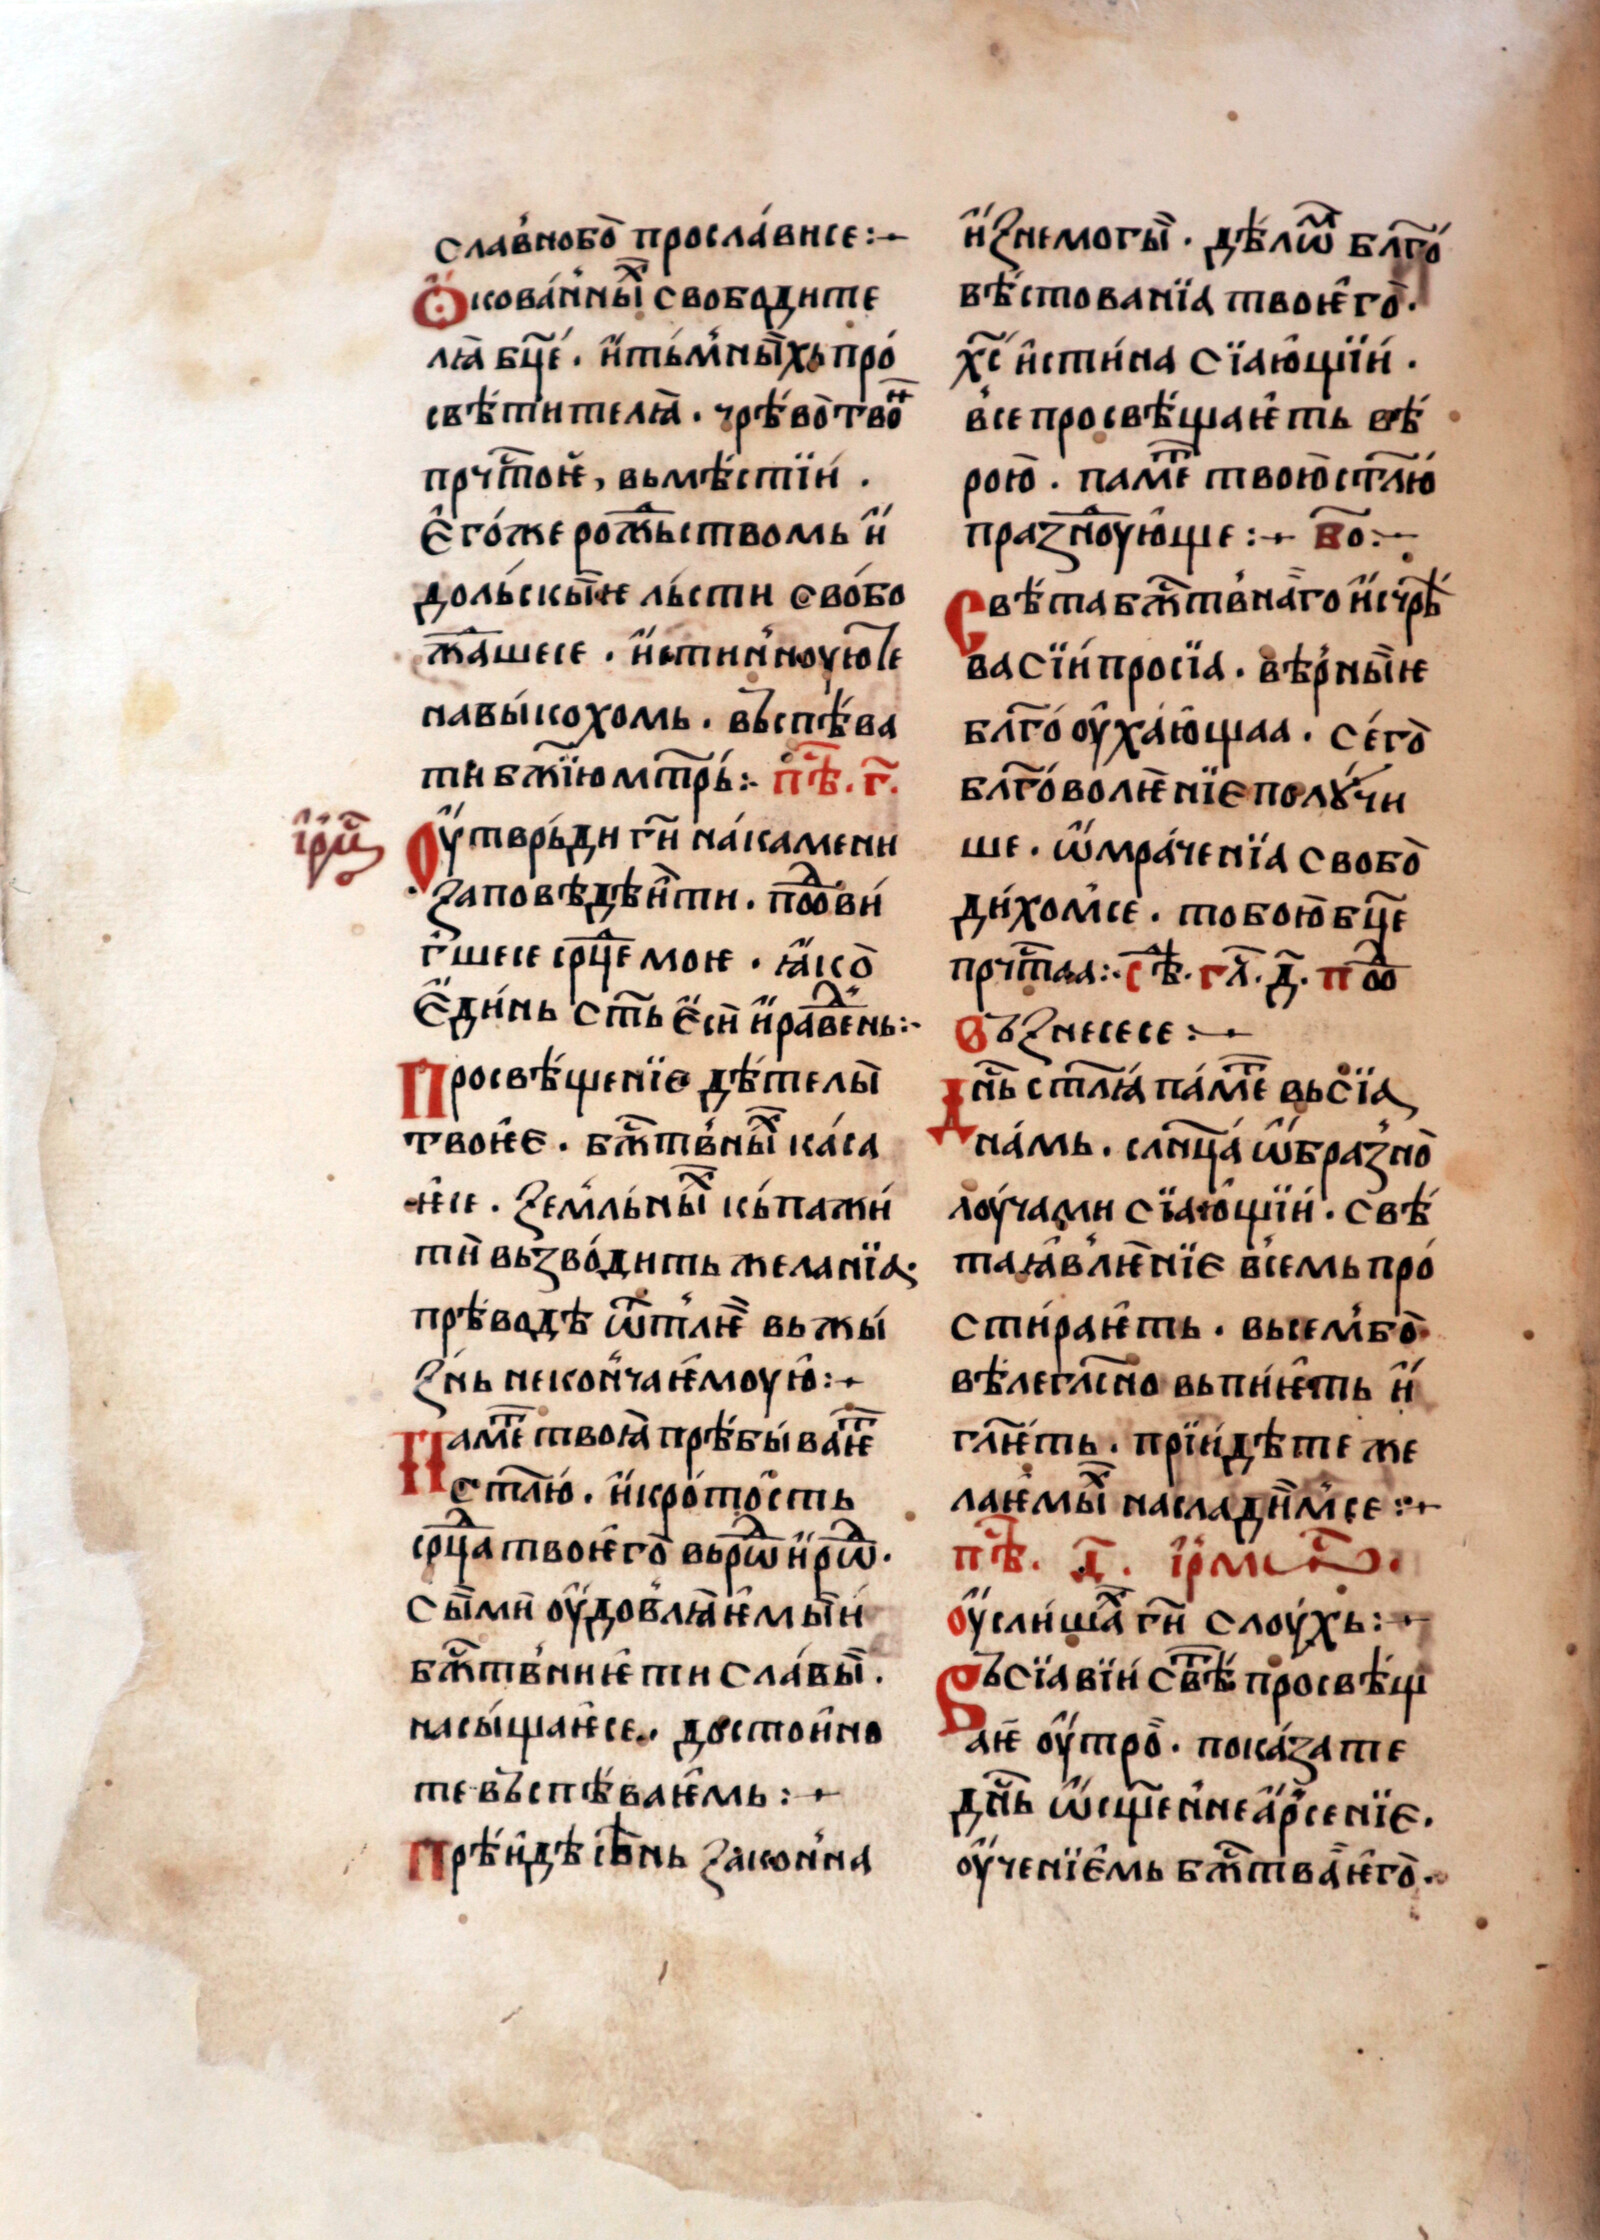 славнобо̀ прослависе:—
Ѻ҆кова́нныⷯ свободите
лꙗ бц҃е · и҆тьмныхь про
свѣтителꙗ · чрѣво̀ твоⷩ
прчⷭ҇тоѥ, вьмѣстїи ·
Е҆го́же рожⷣьствомь и҆
дольскыѥ льсти свобо
жⷣашесе · и҆стин'ноую те
навыкохомь · въспѣва
ти бж҃їю мт҃рь:· пⷭ҇ѣ · г҃ ·
і҆рмⷭ҇
Оу҆твръди ги҃ на камени
заповѣдѣи ти · поⷣви
гшесе срⷣце моѥ · ꙗко̀
Е҆динь ст҃ь е҆си и҆ праⷡвень:·
Просвѣщенїе дѣтелы
твоѥе · бжⷭ҇твныⷯ каса
ѥсе · земльныⷯ къ пажи
ти вьзводить желанїа·
прѣводѣ ѿтлѥ вь жы
знь некон'чаѥмоую:—
Памеⷮ твоꙗ прѣбываѥⷮ
ст҃лю · и҆ кротость
срⷣца твоѥго̀ вь рѡⷣ и҆ рѡⷣ ·
Сыми оу҆довлꙗѥмыи
бжⷭ҇твнїѥ ти славы ·
насыщаѥсе · достоино
те въспѣваѥмь:—
Прѣидѣ сѣнь закон'на
и҆знемогы̀ · дѣлѡⷨ блг҃о
вѣствованїа твоѥго̀ ·
хс҃ и҆стина сїающїи ·
все просвѣщаѥть вѣ
рою̀ · памеⷮ твою ст҃лю
празⷣноующе:— Бо҃:—
Свѣта бжⷭ҇твнаго и҆счрѣ
ва сїи просїа · вѣрныѥ
блг҃ооу҆хающаа · сего̀
блг҃оволѥнїе полꙋчи
ше · ѡ҆мраченїа свобо
дихомсе · тобою бц҃е
прчⷭ҇таа:· сѣⷣ · гл҃ · д҃ · поⷣ
Възнесесе:—
Днⷭ҇ь ст҃лꙗ памеⷮ вьсїа
намь · слнц҃а ѡ҆бразно̀
лоучами сїающїи · свѣ
та ꙗвлѥнїе всемь про
стираѥть · вьсем'бо̀
вѣлегласно вьпиѥть и҆
гл҃ѥть · прїидѣте же
лаѥмыⷯ насладимсе:—
пⷭ҇ѣ · д҃ · і҆рмⷭ҇ ·
Оу҆слишаⷯ ги҃ слоухь:—
Въсїавїи свѣⷮ просвѣщ
аѥ оу҆тро̀ · показа те
днⷭ҇ь ѡ҆сщ҃ен'не а҆рсенїе ·
оу҆ченїемь бжⷭ҇тваѥго̀ ·